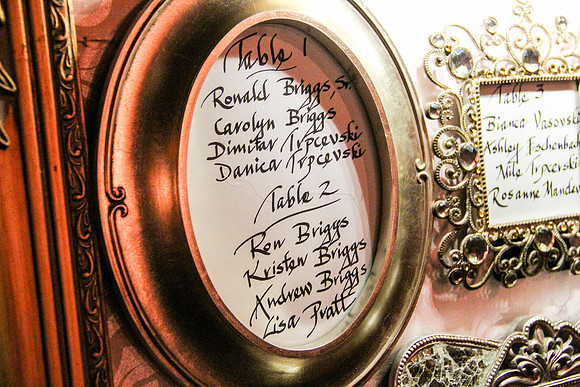 Table 1
Ronald Briggs, Sr.
Carolyn Briggs
Dimitar Trpcevski
Danica Trpcevski
Table 2
Ron Briggs
Kristen Briggs
Andrew Briggs
Lisa Pratt
Table 3
Bianca
Ashley
Nile Trpcevski
Rosanne